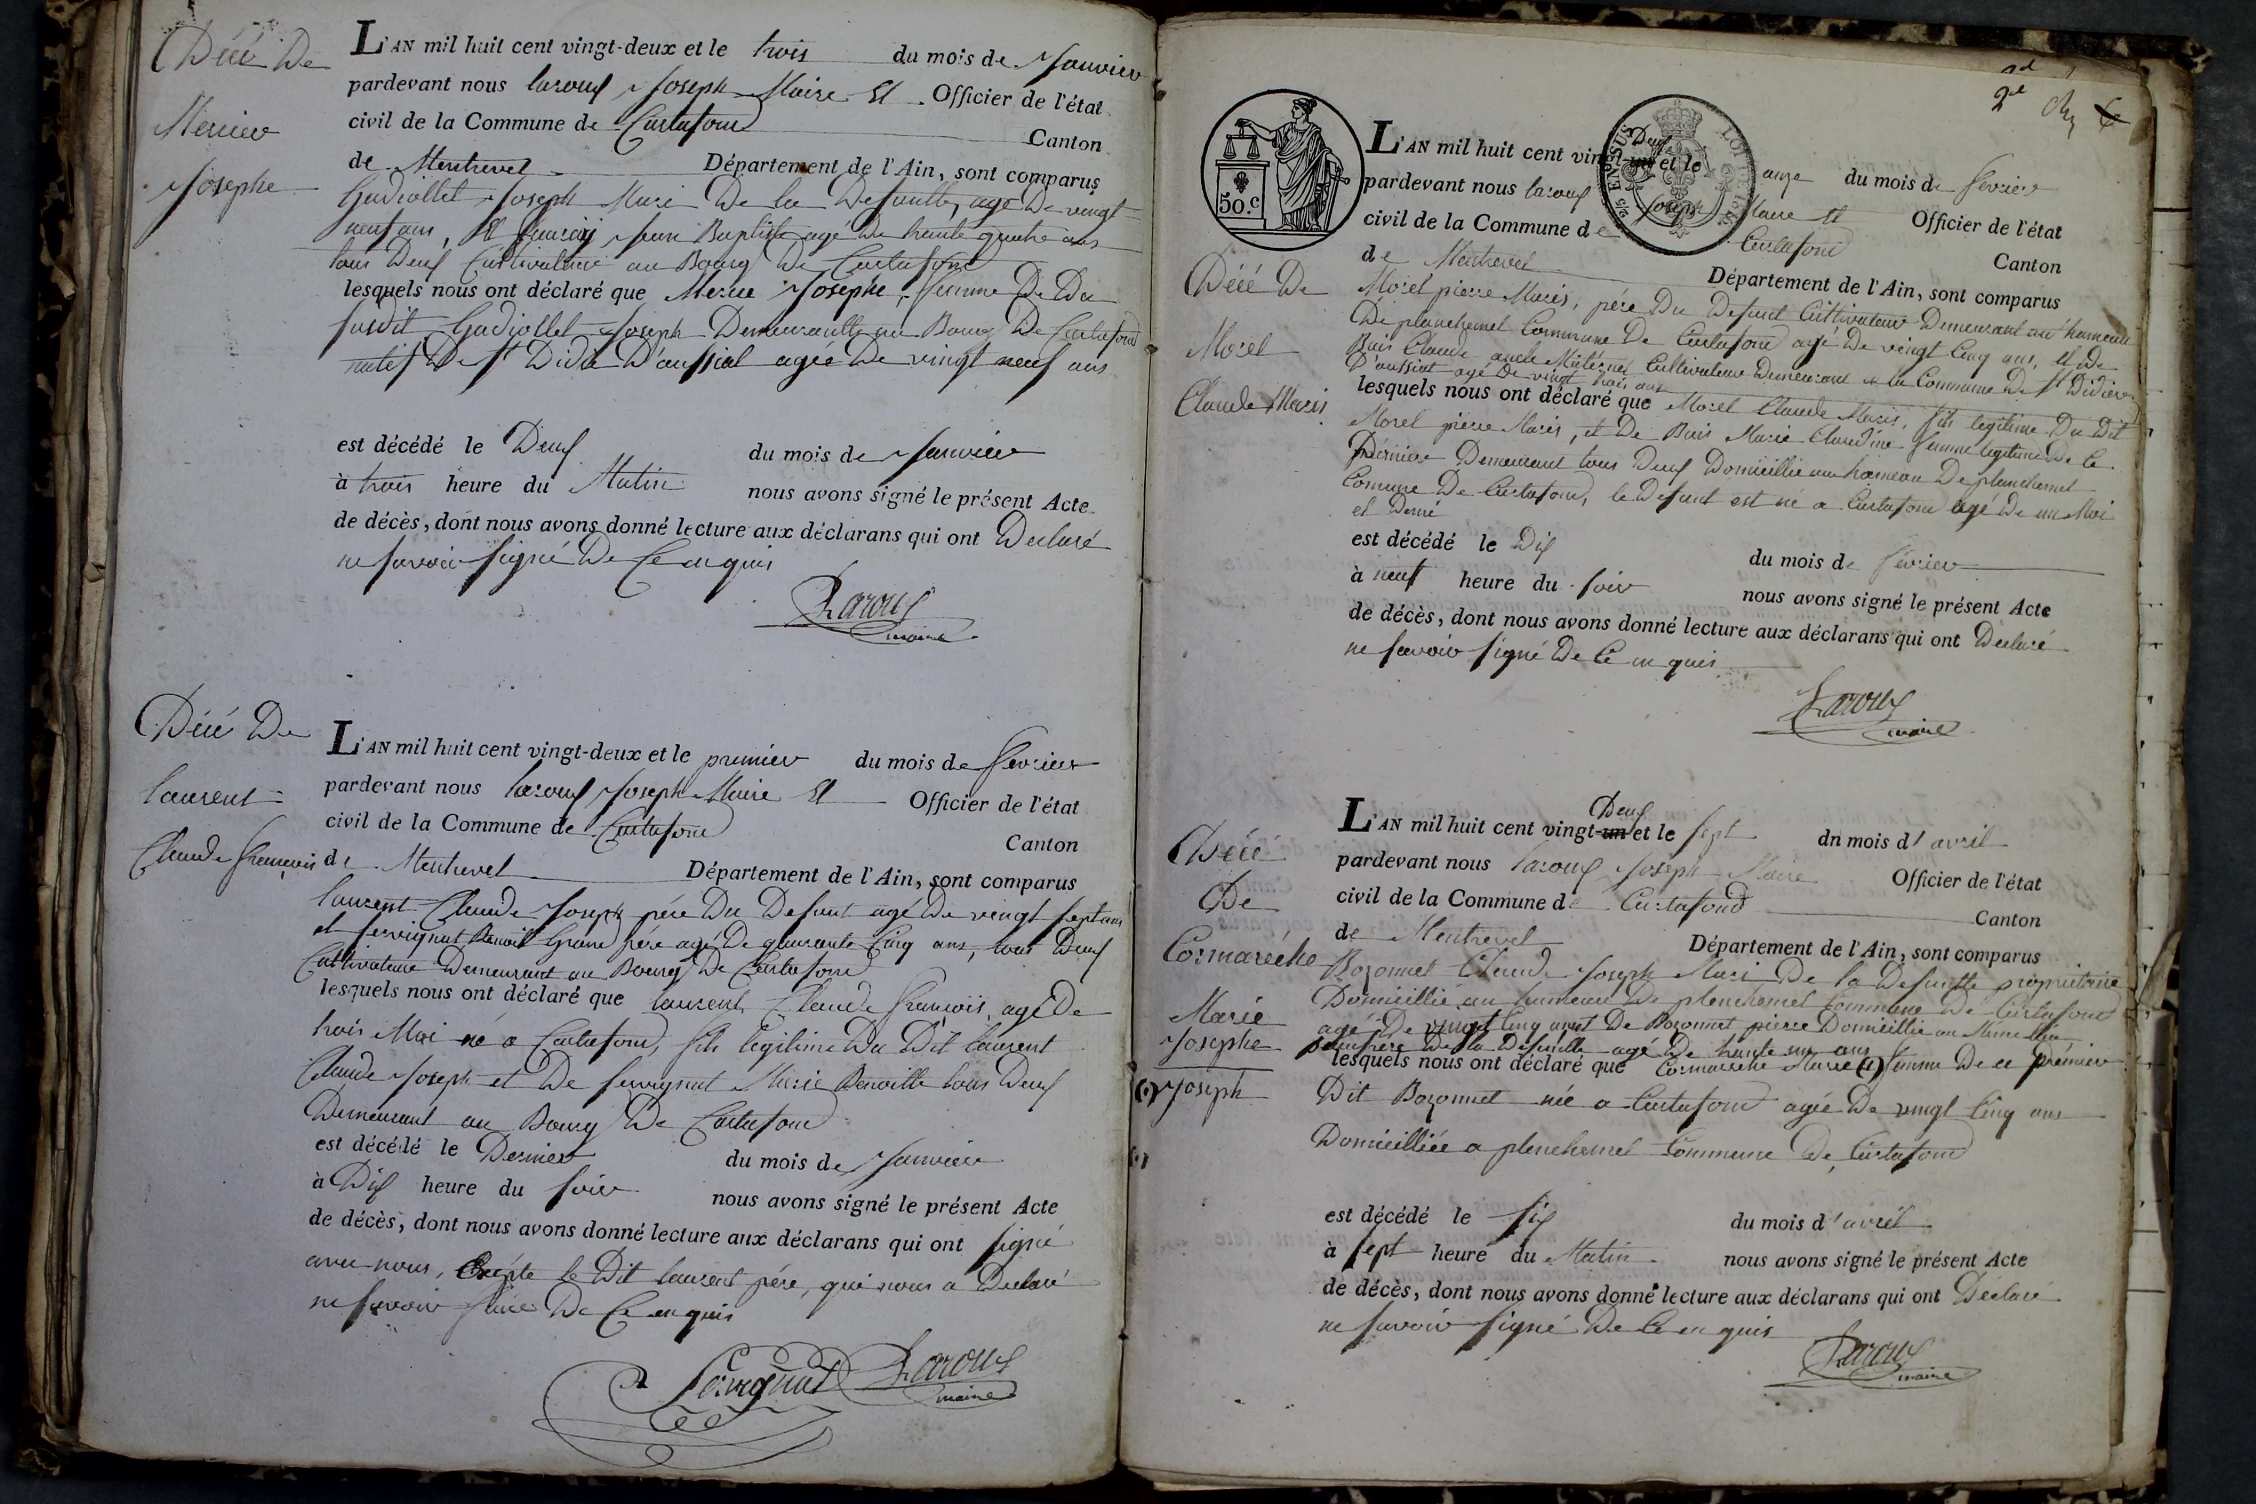 Décé De
Mercier
Josephe
L'AN mil huit cent vingt-deux et le trois du mois de Janvier
pardevant nous laroux Joseph Maire Et Officier de l'état
civil de la Commune de Curtafond Canton
de Montrevel Département de l'Ain, sont comparus
Gudiollet Joseph Mari De la Defuntte, agé De vingt
neuf ans, Et Jean Baptiste agé De trente quatre ans
tous Deux Cultivateur au Bourg De Curtafond
lesquels nous ont déclaré que Josephe, femme De Du
susdit Gudiollet Joseph Demeurantte au Bourg De Curtafond
natif De St Didie D'aussiat agée De vingt neuf ans
est décédé le Deux du mois de Janvier
à trois heure du Matin nous avons signé le présent Acte
de décès, dont nous avons donné lecture aux déclarans qui ont Declaré
ne savoir signé De Ce enquis
Laroux
maire
Décé De
laurent
Claude François
L'AN mil huit cent vingt-deux et le premier du mois de fevrier
pardevant nous laroux Joseph Maire Et Officier de l'état
civil de la Commune de Curtafond Canton
de Montrevel Département de l'Ain, sont comparus
laurent Claude Joseph pére Du Defunt agé De vingt sept ans
et fervignat Benoit Grand pére agé De quarante Cinq ans, tous Deux
Cultivateur Demeurant au Bourg De Curtafond
lesquels nous ont déclaré que laurent Claude françois, agé De
trois Moi né a Curtafond, fils legitime Du Dit laurent
Claude Joseph et De fervignat Marie Benoitte tous Deux
Demeurant au Bourg De Curtafond
est décédé le Dernier du mois de Janvier
à Dix heure du soir nous avons signé le présent Acte
de décès, dont nous avons donné lecture aux déclarans qui ont signé
avec nous, Exépte le Dit laurent pére, que nous a Declaré
ne savoir faire De Ce enquis
fervignat Laroux
maire
2d
2e
6
50.c
LOI DE 1816
Décé De
Morel
Claude Maris
Deux
L'AN mil huit cent vingt-un et le onze du mois de fevrier
pardevant nous laroux Joseph Maire Et Officier de l'état
civil de la Commune de Curtafond Canton
de Montrevel Département de l'Ain, sont comparus
Morel pierre Maris, pére Du Defunt Cultivateur Demeurant au hameau
De planchemel Commune De Curtafond agé De vingt Cinq ans, et De
Buis Claude oncle Maternel Cultivateur Demeurant a la Commune De St Didier
D'aussiat agé De vingt trois ans
lesquels nous ont déclaré que Morel Claude Maris, fils legitime Du Dit
Morel pierre Maris, et De Buis Marie Claudine femme legitime De Ce
Dernier Demeurant tous Deux Domicillié au hameau De planchemel
Comune De Curtafond, le Defunt est né a Curtafond agé De un Moi
et Demi
est décédé le Dix du mois de fevrier
à neuf heure du soir nous avons signé le présent Acte
de décès, dont nous avons donné lecture aux déclarans qui ont Declaré
ne savoir signé De Ce enquis
Laroux
maire
Décé
De
Cormaréche
Marie
Josephe
(1) Joseph
Deux
L'AN mil huit cent vingt-un et le sept dn mois d'avril
pardevant nous laroux Joseph Maire Officier de l'état
civil de la Commune de Curtafond Canton
de Montrevel Département de l'Ain, sont comparus
Bozonnet Claude Joseph Mari De la Defuntte propriétaire
Domicillié au hameau De planchemel Commune De Curtafond
agé De vingt Cinq De Bozonnet pierre Domicillié au Même lieu
De la Defuntte agé De trente un ans
lesquels nous ont déclaré que Cormareche Marie (1) femme De ce prémier
Dit Bozonnet née a Curtafond agée De vingt Cinq ans
Domicilliée a planchemel Commune De Curtafond
est décédé le Six du mois d'avril
à sept heure du Matin nous avons signé le présent Acte
de décès, dont nous avons donné lecture aux déclarans qui ont Déclaré
ne savoir signé De Ce enquis
Laroux
maire